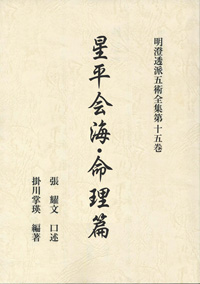 明澄透派五術全集第十五巻
星平会海・命理篇
張 耀文 口述
掛川掌瑛 編著